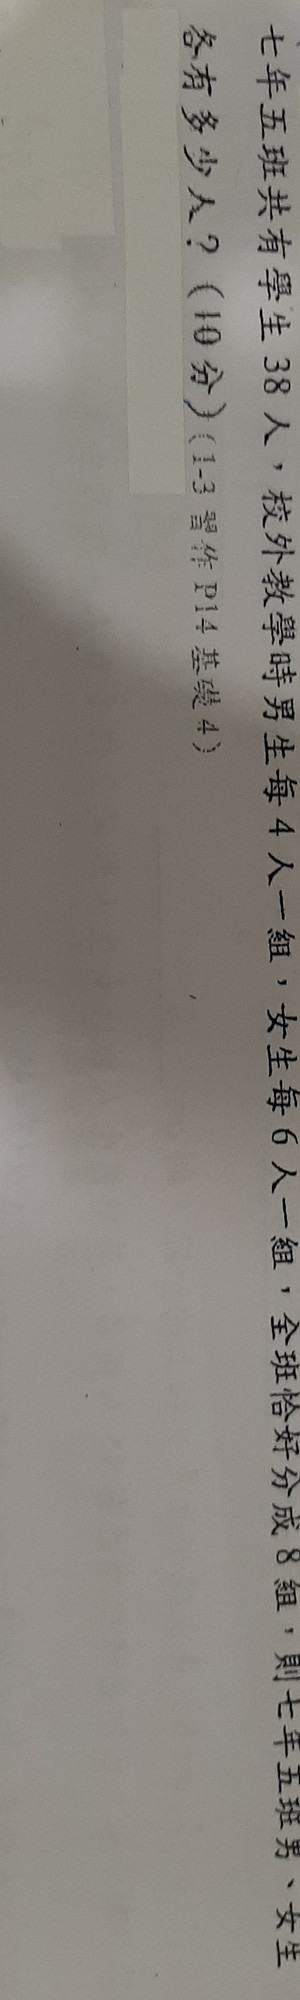 七年五班共有學生 38 人，校外教學時男生每 4 人一組，女生每 6 人一組，全班恰好分成 8 組，則七年五班男、女生
各有多少人？（10 分）（1-3 習作 P14 基礎 4）